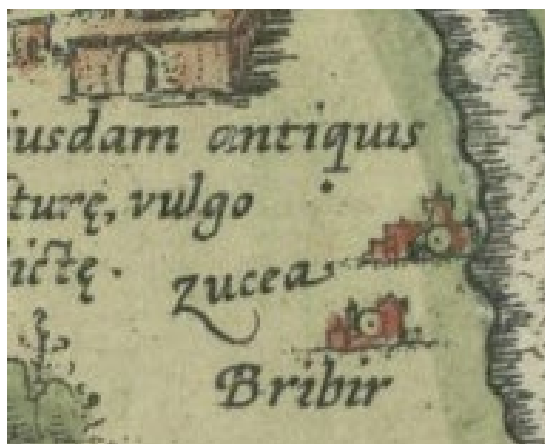 iusdam antiquis
turę, vulgo
ictę.
Zucea
Bribir